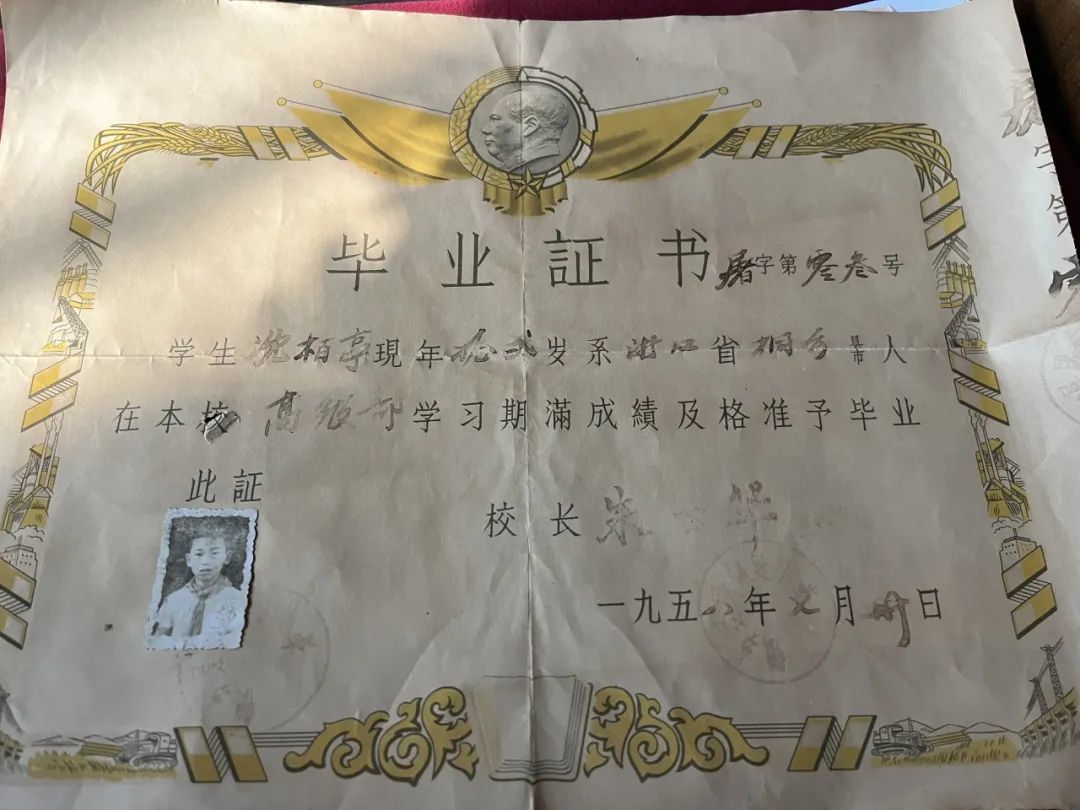 毕业証书 字第零叁号
学生沈栢亭現年拾弍岁系浙江省桐乡县市人
在本校高级部学习期滿成績及格准予毕业
此証
校长朱 华
一九五八年 月 日
字第